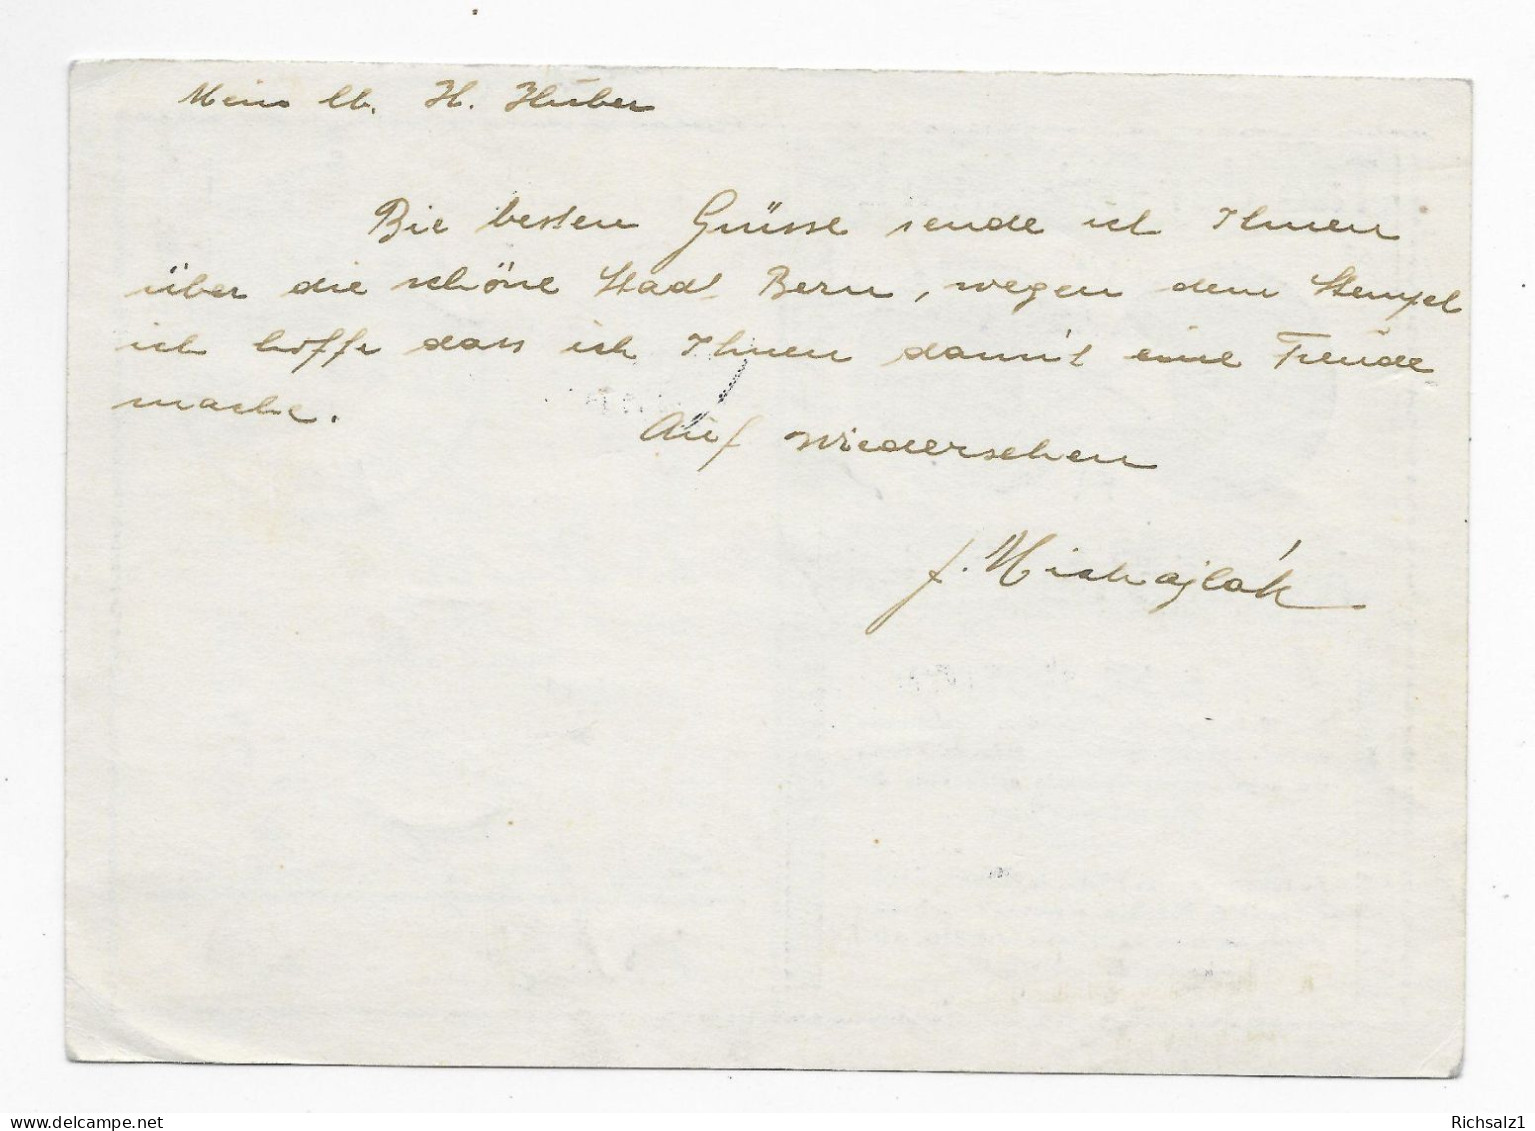 Mein lb. H. Huber
Die besten Grüsse sende ich Ihnen
über die schöne Stadt Bern, wegen dem Stempel
ich hoffe dass ich Ihnen damit eine Freude
mache.
Auf wiedersehen
J. Michajlák
Richsalz1